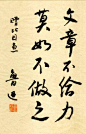 文章不给力
莫如不做之
魯迅